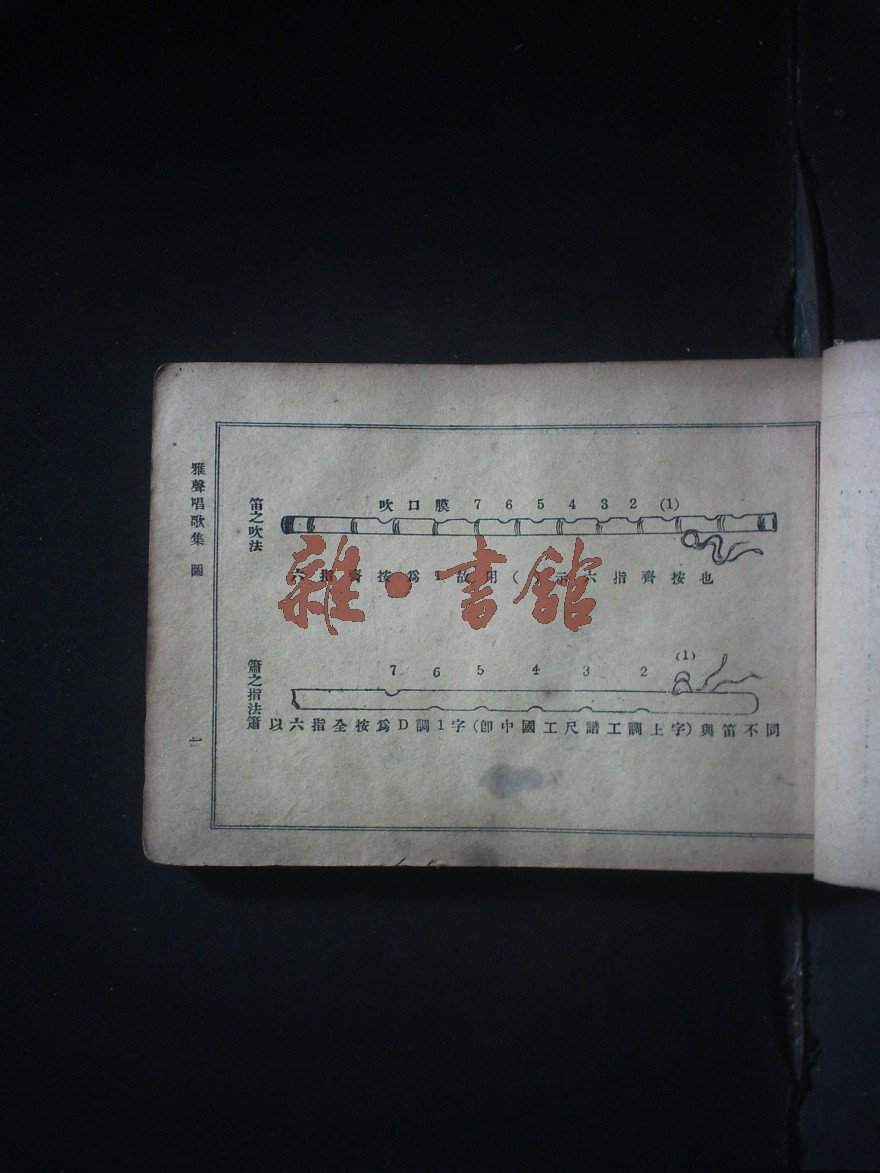 雅聲唱歌集 圖
一
笛之吹法
吹 口 膜 7 6 5 4 3 2 (1)
六指齊按爲1故用( )示六指齊按也
雜·書館
簫之指法
7 6 5 4 3 2 (1)
簫以六指全按爲D調1字(卽中國工尺譜工調上字)與笛不同